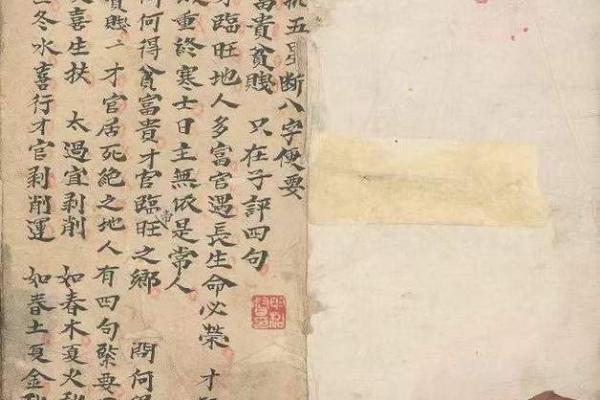 五星断八字便要
富貴貧賤 只在子評四句
才臨旺地人多富官遇長生命必榮 才
重終寒士日主無依是常人
何得貧富貴才官臨旺之鄉 問何
貧賤二才官居死絕之地人有四句緊要
喜生扶 太過宜剥削 如春木夏火
冬水喜行才官剥削運 如春土夏金